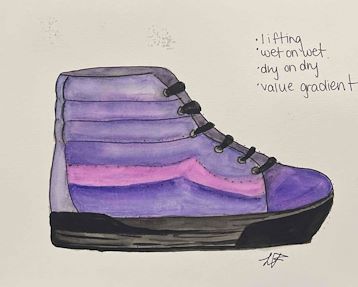 ·lifting
·wet on wet.
·dry on dry
·value gradient